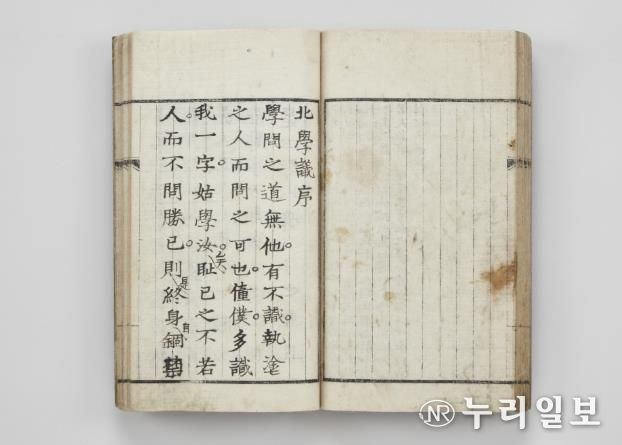 北學議序
學問之道無他。有不識。執塗
之人而問之可也。僮僕。多識
我一字。姑學汝矣。恥己之不若
人。而不問勝己。則是終身自錮
NR 누리일보